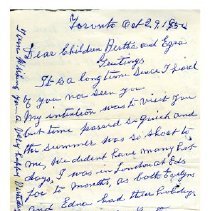 Toronto Oct 29, 1950
Dear Children Bertha and Ezra
Greetings
It is a long time since I heard
of you nor seen you
My intention was to visit you
but time passed so quick and
the Summer was so short to
me. We dident have many hot
days, I was in London at Eds
for to months, as both Evelyn
and Edna had their holidays
wishing you a